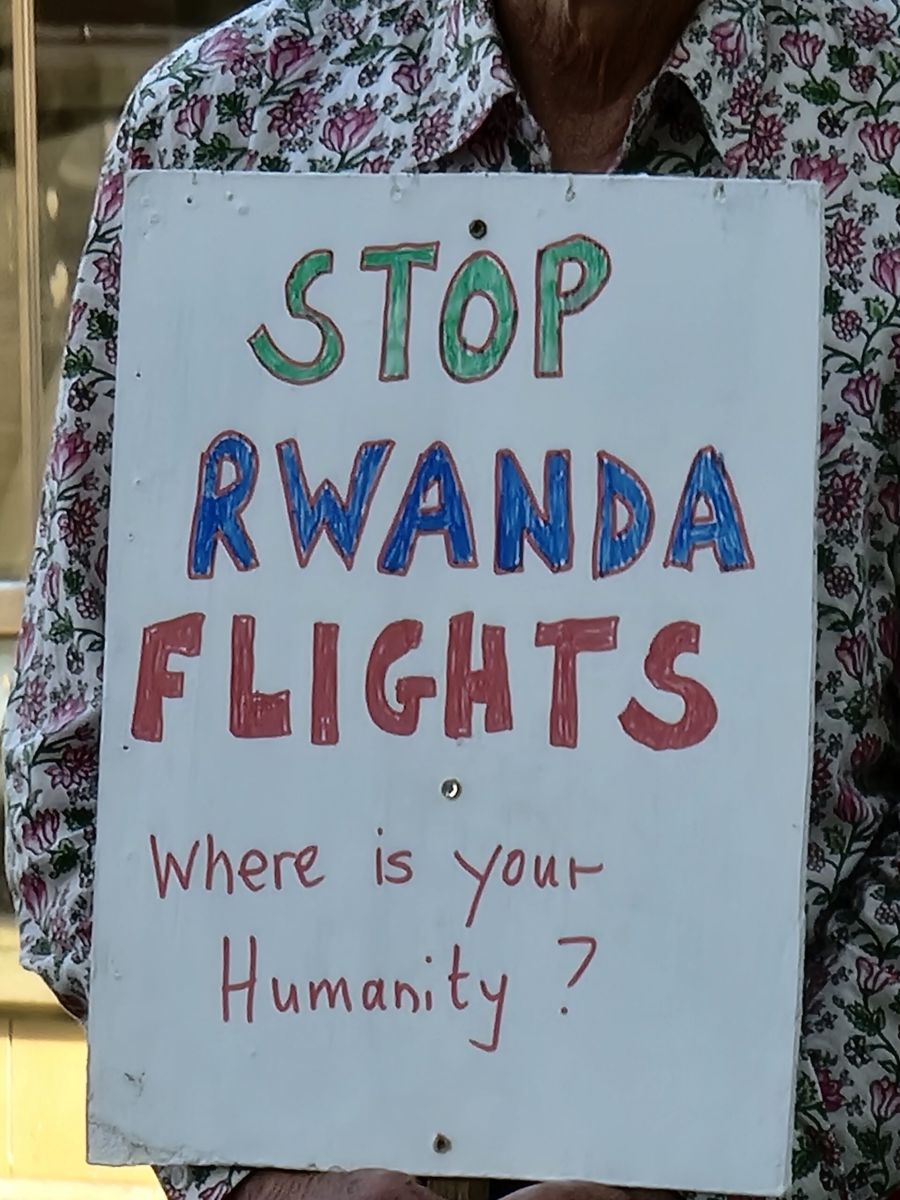 STOP
RWANDA
FLIGHTS
Where is your
Humanity?